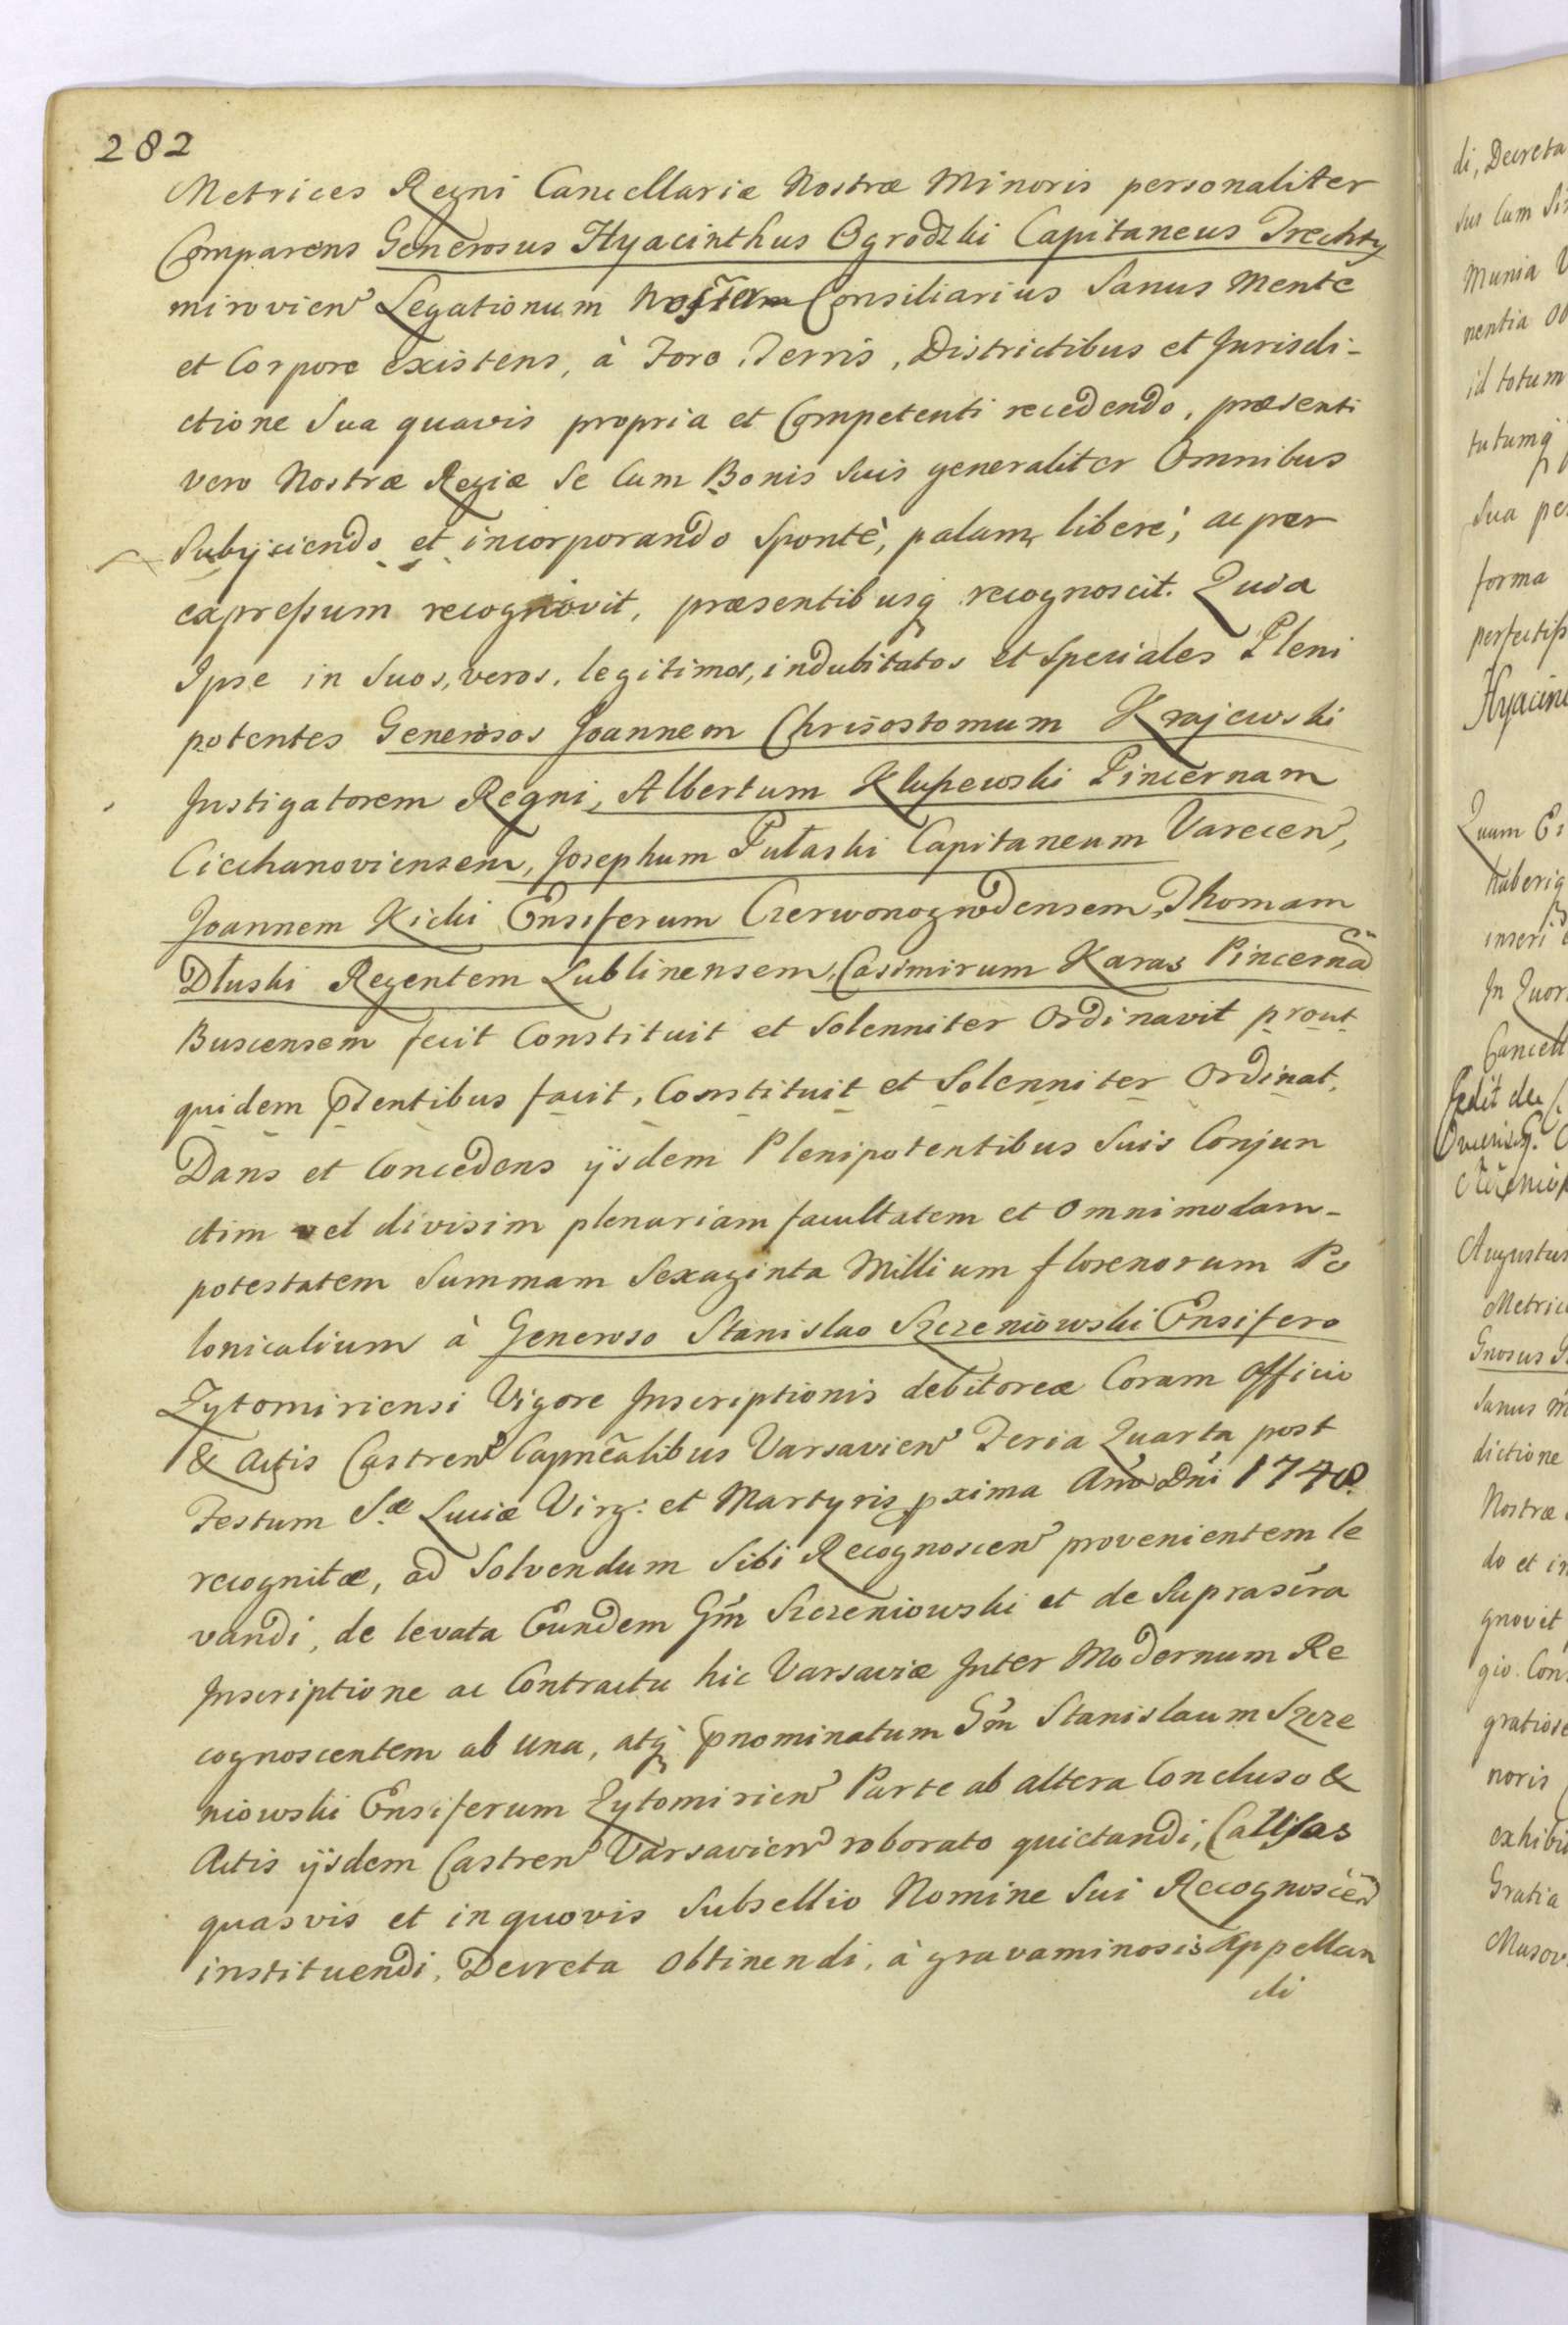 282
Metrices Regni Cancellariæ Nostræ Minoris personaliter
Comparens Generosus Hyacinthus Ogrodzki Capitaneus Trechty
mirovien Legationum Consiliarius Sanus Mente
et Corpore existens, à Foro, Terris, Districtibus et Jurisdi-
ctione Sua quavis propria et Competenti recedendo, præsenti
vero Nostræ Regiæ Se Cum Bonis Suis generaliter Omnibus
Subijciendo et incorporando Spontè, palam, liberè, ac per
expressum recognovit, præsentibusq recognoscit. Quia
Ipse in Suos, veros, legitimos, indubitatos et Speciales Pleni
potentes Generosos Joannem Chrisostomum Krajewski
Instigatorem Regni, Albertum Klussewski Pincernam
Ciechanoviensem, Josephum Pułaski Capitaneum Varecen,
Joannem Kicki Ensiferum Czerwonogrodensem, Thomam
Dłuski Regentem Lublinensem, Casimirum Karas Pincernã
Buscensem fecit Constituit et Solenniter Ordinavit prout
quidem p̃ntibus facit, Constituit et Solenniter Ordinat.
Dans et Concedens ijsdem Plenipotentibus Suis Conjun
ctim vel divisim plenariam facultatem et Omnimodam-
potestatem Summam Sexaginta Millium florenorum Po
lonicalium à Generoso Stanislao Szczeniowski Ensifero
Zytomiriensi Vigore Inscriptionis debitoreæ Coram Officio
& Actis Castren Capnẽalibus Varsavien Feria Quarta post
Festum S.æ Luciæ Virg: et Martyris pxima Año Dñi 1748.
recognitæ, ad Solvendum Sibi Recognoscen provenientem le
vandi, de levata Eundem Gm̃ Szczeniowski et de Suprascra
Inscriptione ac Contractu hic Varsaviæ Inter Modernum Re
cognoscentem ab una, atq p̃nominatum Gm̃ Stanislaum Szcze
niowski Ensiferum Zytomirien Parte ab altera Concluso &
Actis ijsdem Castren Varsavien roborato quietandi, Causas
quasvis et in quovis Subsellio Nomine Sui Recognoscen
instituendi, Decreta Obtinendi, à gravaminosis Appellan
di
di, Decreta
Sus Cum
Munia
nentia
id totum
tutumq
Sua
forma
Quum
In
Cancell
Augustus
Gnosus
Sanus
dictione
Nostræ
do et in
gnovit
gio
noris
Gratia